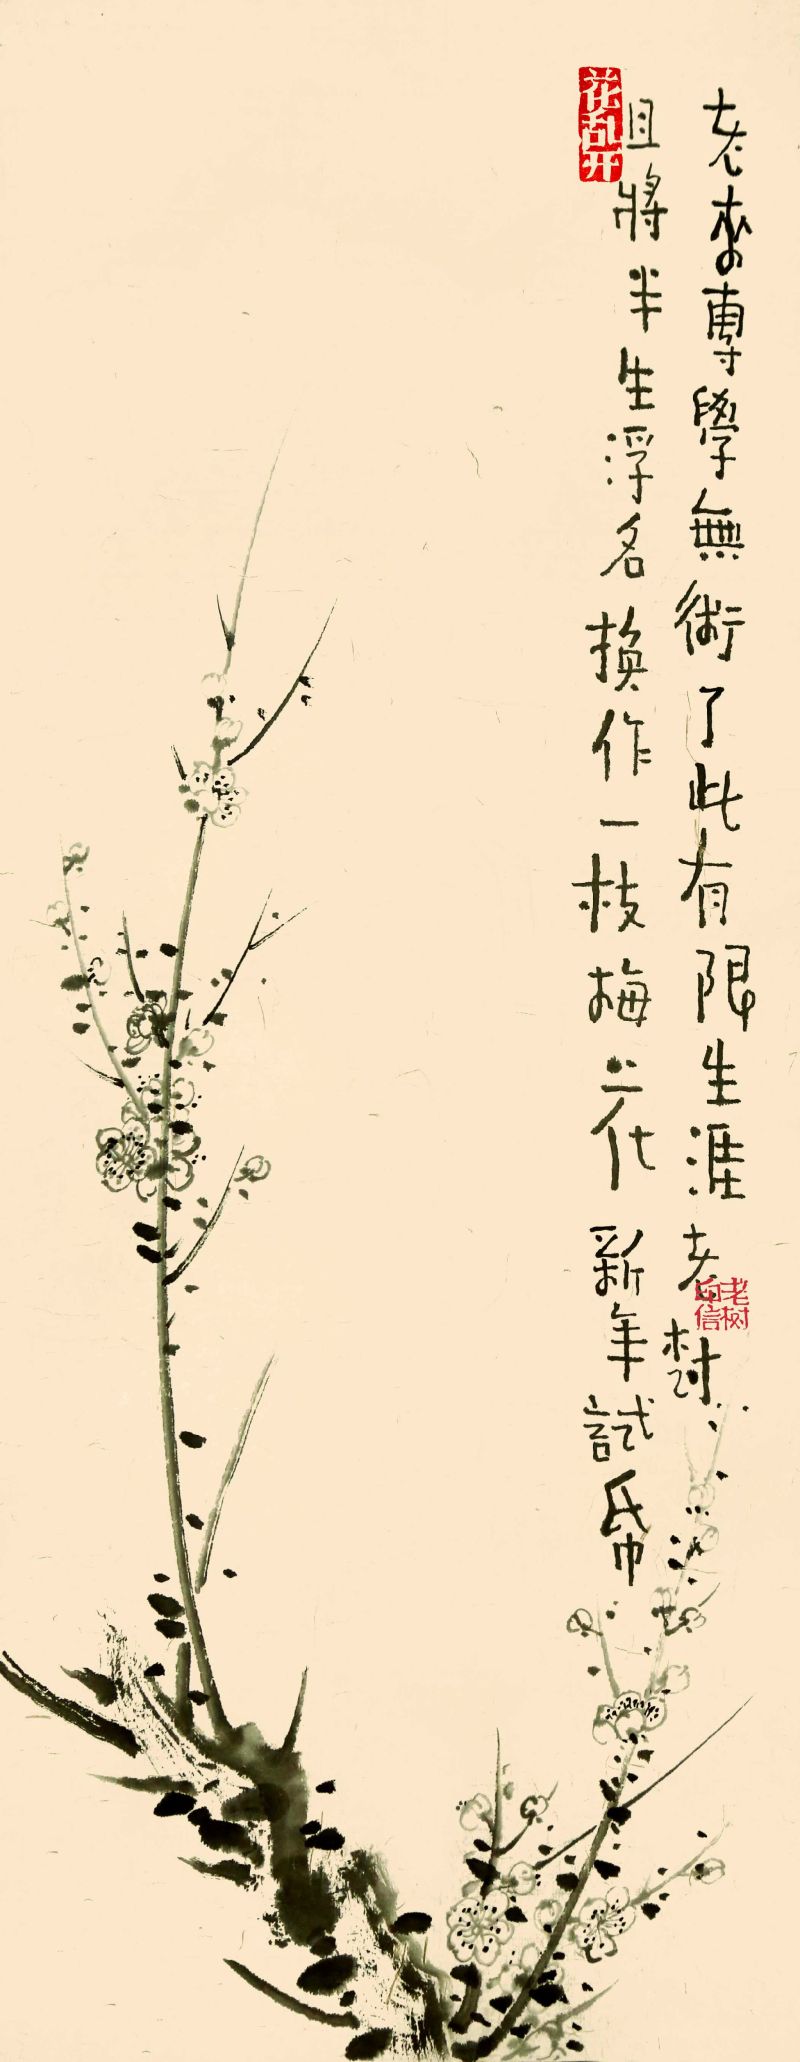 老来專學無術了此有限生涯老樹
且將半生浮名換作一枝梅花新年試帋
花乱开
老树
白信